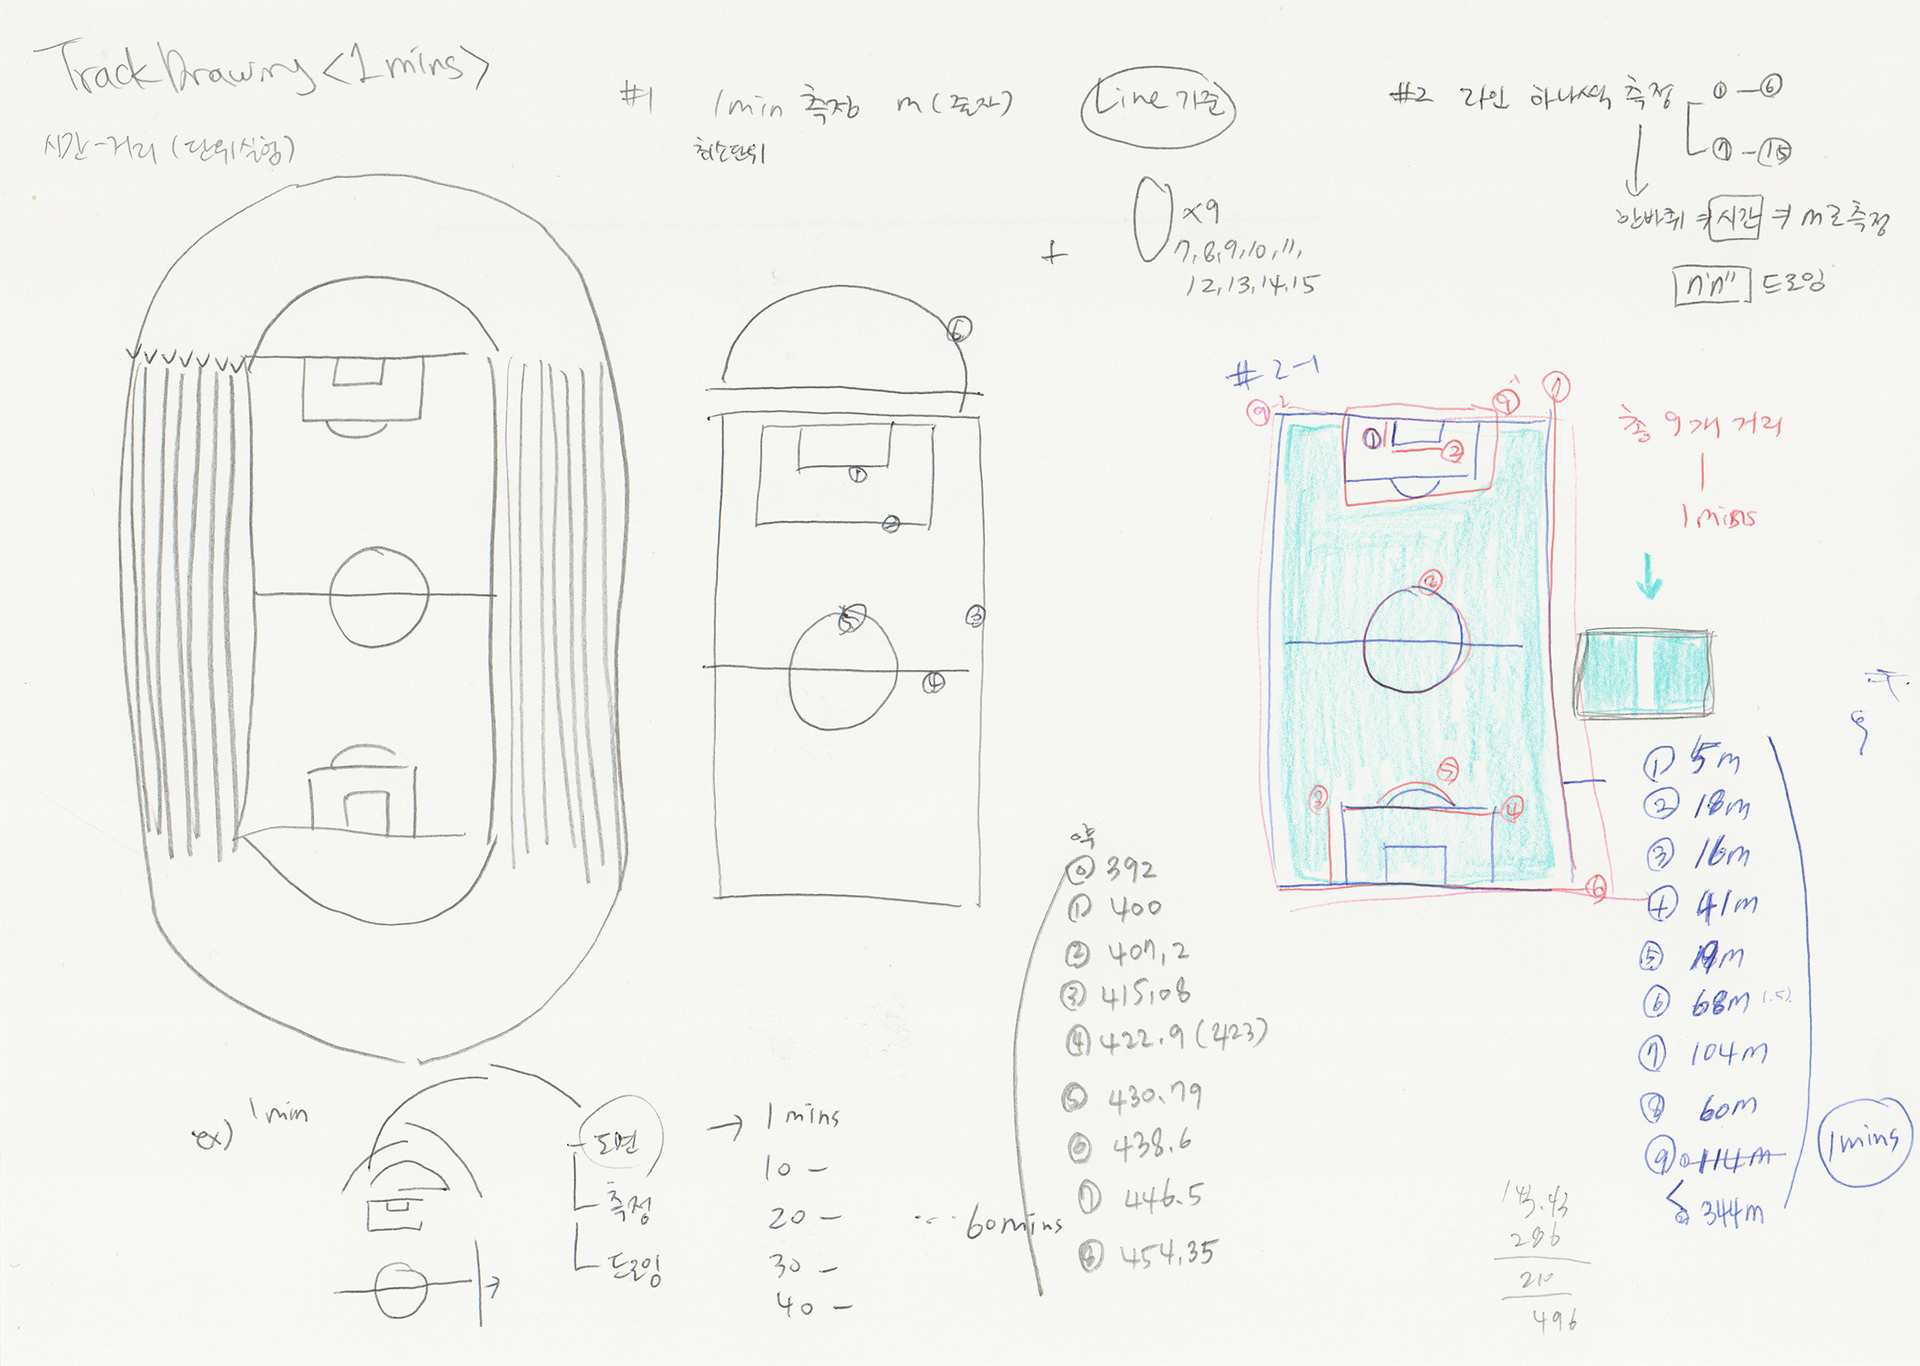 Track Drawing <1 mins>
시간-거리 (단위실험)
#1 1min 측정 m (줄자)
최소단위
Line 기준
+
×9
7,8,9,10,11,
12,13,14,15
#2 라인 하나씩 측정 ①-⑥
⑦-⑮
한바퀴 시간 m로 측정
n'n" 드로잉
⑥
①
②
⑤
③
④
#2-1
⑨-2
⑨-1
⑦
①
②
⑧
③
⑤
④
⑥
총 9개 거리
1 mins
① 5m
② 18m
③ 16m
④ 41m
⑤ 19m
⑥ 68m (.5)
⑦ 104m
⑧ 60m
⑨ 114m
344m
1mins
약
⓪ 392
① 400
② 407,2
③ 415,08
④ 422.9 (423)
⑤ 430.79
⑥ 438.6
⑦ 446.5
⑧ 454.35
ex) 1min
도면
측정
드로잉
→ 1 mins
10 -
20 - ... 60mins
30 -
40 -
143.43
286
210
496